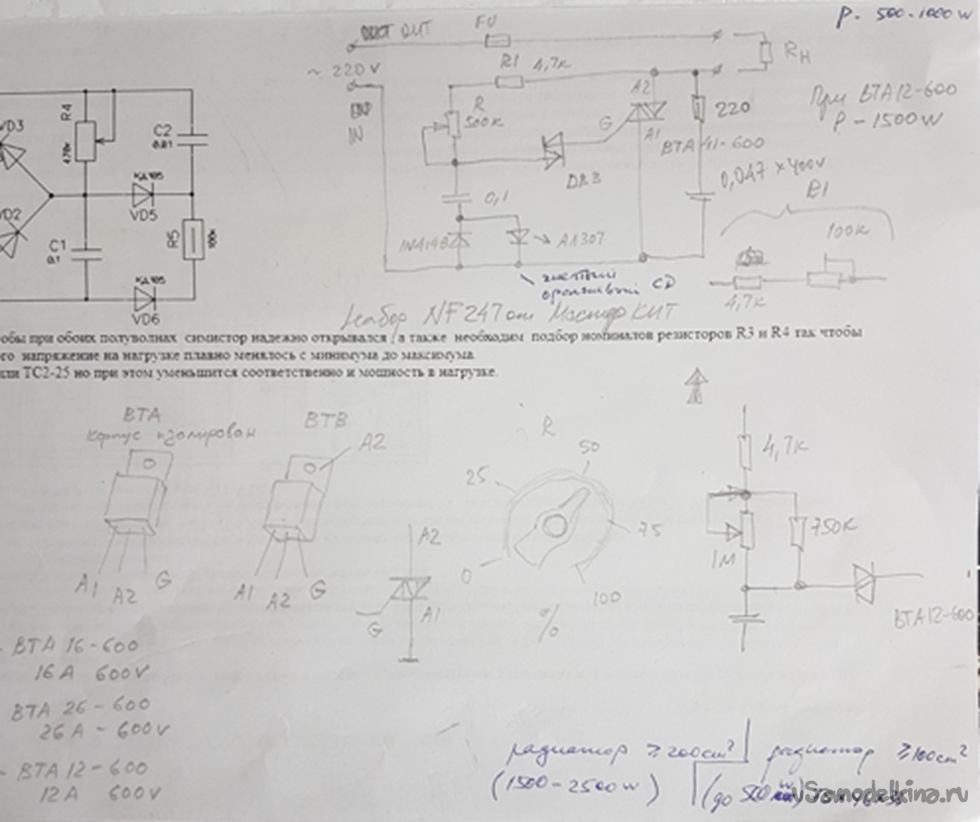 P - 500-1000 W
OUT
FU
RH
~ 220 V
R1 4,7к
A2
220
При BTA12-600
P - 1500 W
IN
R
500к
G
A1
BTA41-600
DB3
0,047 x 400v
0,1
R1
1N4148
АЛ307
100к
4,7к
желтый
оранжевый СД
Набор NF247 от Мастер КИТ
VD3
R4
470к
C2
0.01
КД105
VD5
VD2
C1
0.1
R5
100к
КД105
VD6
обы при обоих полуволнах симистор надежно открывался , а также необходим подбор номиналов резисторов R3 и R4 так чтобы
ого напряжение на нагрузке плавно менялось с минимума до максимума.
или ТС2-25 но при этом уменьшится соответственно и мощность в нагрузке.
BTA
корпус изолирован
BTB
A2
A1 A2 G
A1 A2 G
A2
G
A1
R
0
25
50
75
100
%
4,7к
1М
750к
BTA12-600
- BTA 16-600
16 A 600V
BTA 26-600
26 A - 600V
- BTA 12-600
12 A 600V
радиатор ≥ 200cm²
(1500-2500 W)
радиатор ≥100cm²
(до 500 W
uSamodelkina.ru